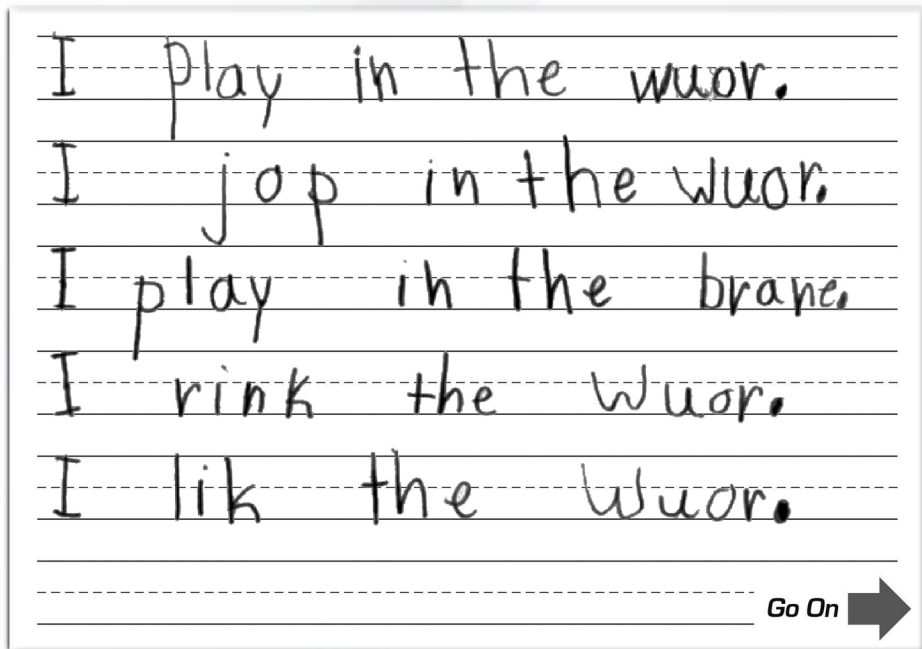 I play in the wuor.
I jop in the wuor.
I play in the brane.
I rink the Wuor.
I lik the Wuor.
Go On